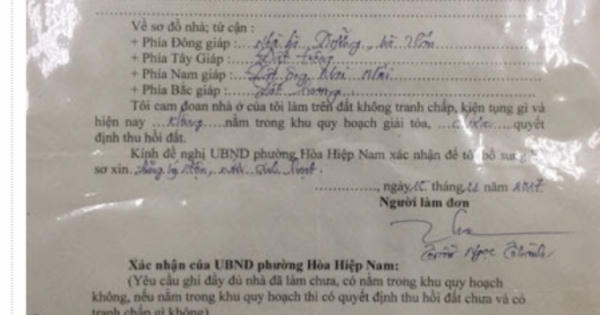 Về sơ đồ nhà; tứ cận :
+ Phía Đông giáp : Nhà bà
+ Phía Tây Giáp : Đất trống
+ Phía Nam giáp : Đất ông
+ Phía Bắc giáp : Đất
Tôi cam đoan nhà ở của tôi làm trên đất không tranh chấp, kiện tụng gì và
hiện nay không nằm trong khu quy hoạch giải tỏa, chưa quyết
định thu hồi đất.
Kính đề nghị UBND phường Hòa Hiệp Nam xác nhận để tôi bổ sung
sơ xin
, ngày tháng năm
Người làm đơn
Ngọc
Xác nhận của UBND phường Hòa Hiệp Nam:
(Yêu cầu ghi đầy đủ nhà đã làm chưa, có nằm trong khu quy hoạch
không, nếu nằm trong khu quy hoạch thì có quyết định thu hồi đất chưa và có
tranh chấp gì không)